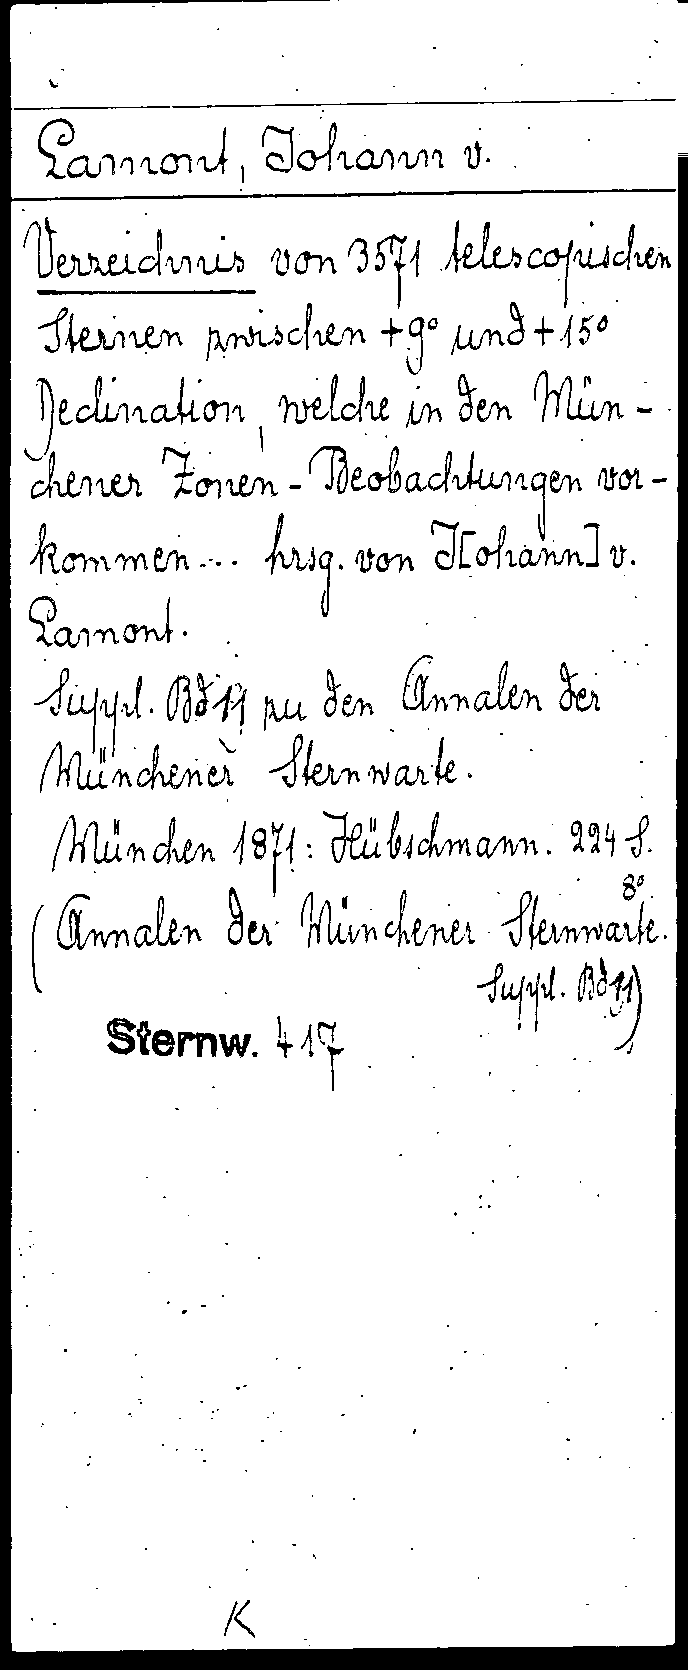 Lamont, Johann v.
Verzeichnis von 3571 telescopischen
Sternen zwischen +9° und +15°
Declination, welche in den Mün-
chener Zonen-Beobachtungen vor-
kommen... hrsg. von J[ohann] v.
Lamont.
Suppl. Bd 11 zu den Annalen der
Münchener Sternwarte.
München 1871: Hübschmann. 224 S.
8°
(Annalen der Münchener Sternwarte.
Suppl. Bd 11)
Sternw. 417
K